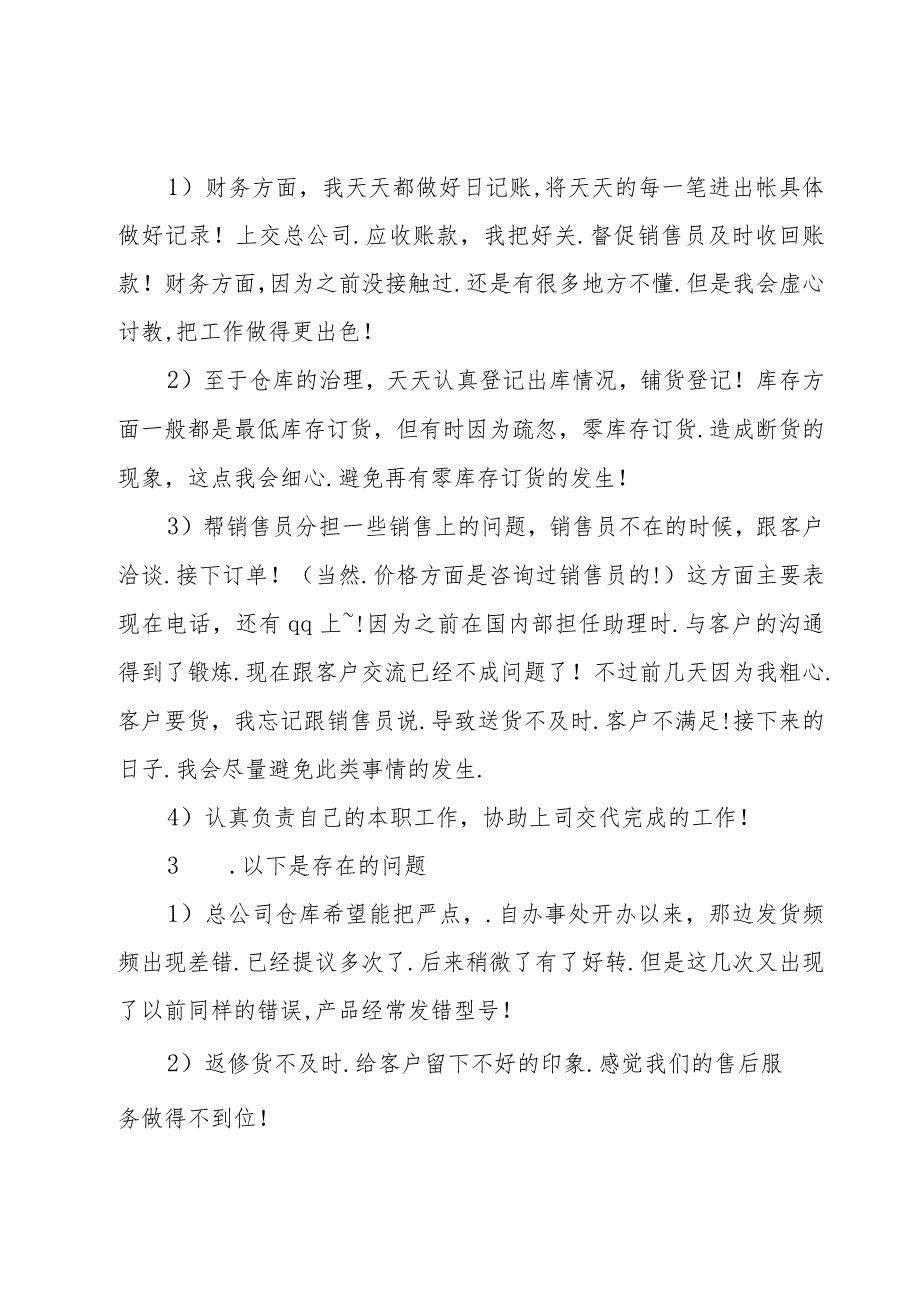 1）财务方面，我天天都做好日记账,将天天的每一笔进出帐具体
做好记录！上交总公司.应收账款，我把好关.督促销售员及时收回账
款！财务方面,因为之前没接触过.还是有很多地方不懂.但是我会虚心
讨教,把工作做得更出色！
2）至于仓库的治理，天天认真登记出库情况，铺货登记！库存方
面一般都是最低库存订货，但有时因为疏忽，零库存订货.造成断货的
现象，这点我会细心.避免再有零库存订货的发生！
3）帮销售员分担一些销售上的问题，销售员不在的时候，跟客户
洽谈.接下订单！（当然.价格方面是咨询过销售员的!）这方面主要表
现在电话，还有 qq 上~!因为之前在国内部担任助理时.与客户的沟通
得到了锻炼.现在跟客户交流已经不成问题了！不过前几天因为我粗心.
客户要货，我忘记跟销售员说.导致送货不及时.客户不满足!接下来的
日子.我会尽量避免此类事情的发生.
4）认真负责自己的本职工作，协助上司交代完成的工作！
3 .以下是存在的问题
1）总公司仓库希望能把严点，.自办事处开办以来，那边发货频
频出现差错.已经提议多次了.后来稍微了有了好转.但是这几次又出现
了以前同样的错误,产品经常发错型号！
2）返修货不及时.给客户留下不好的印象.感觉我们的售后服
务做得不到位！